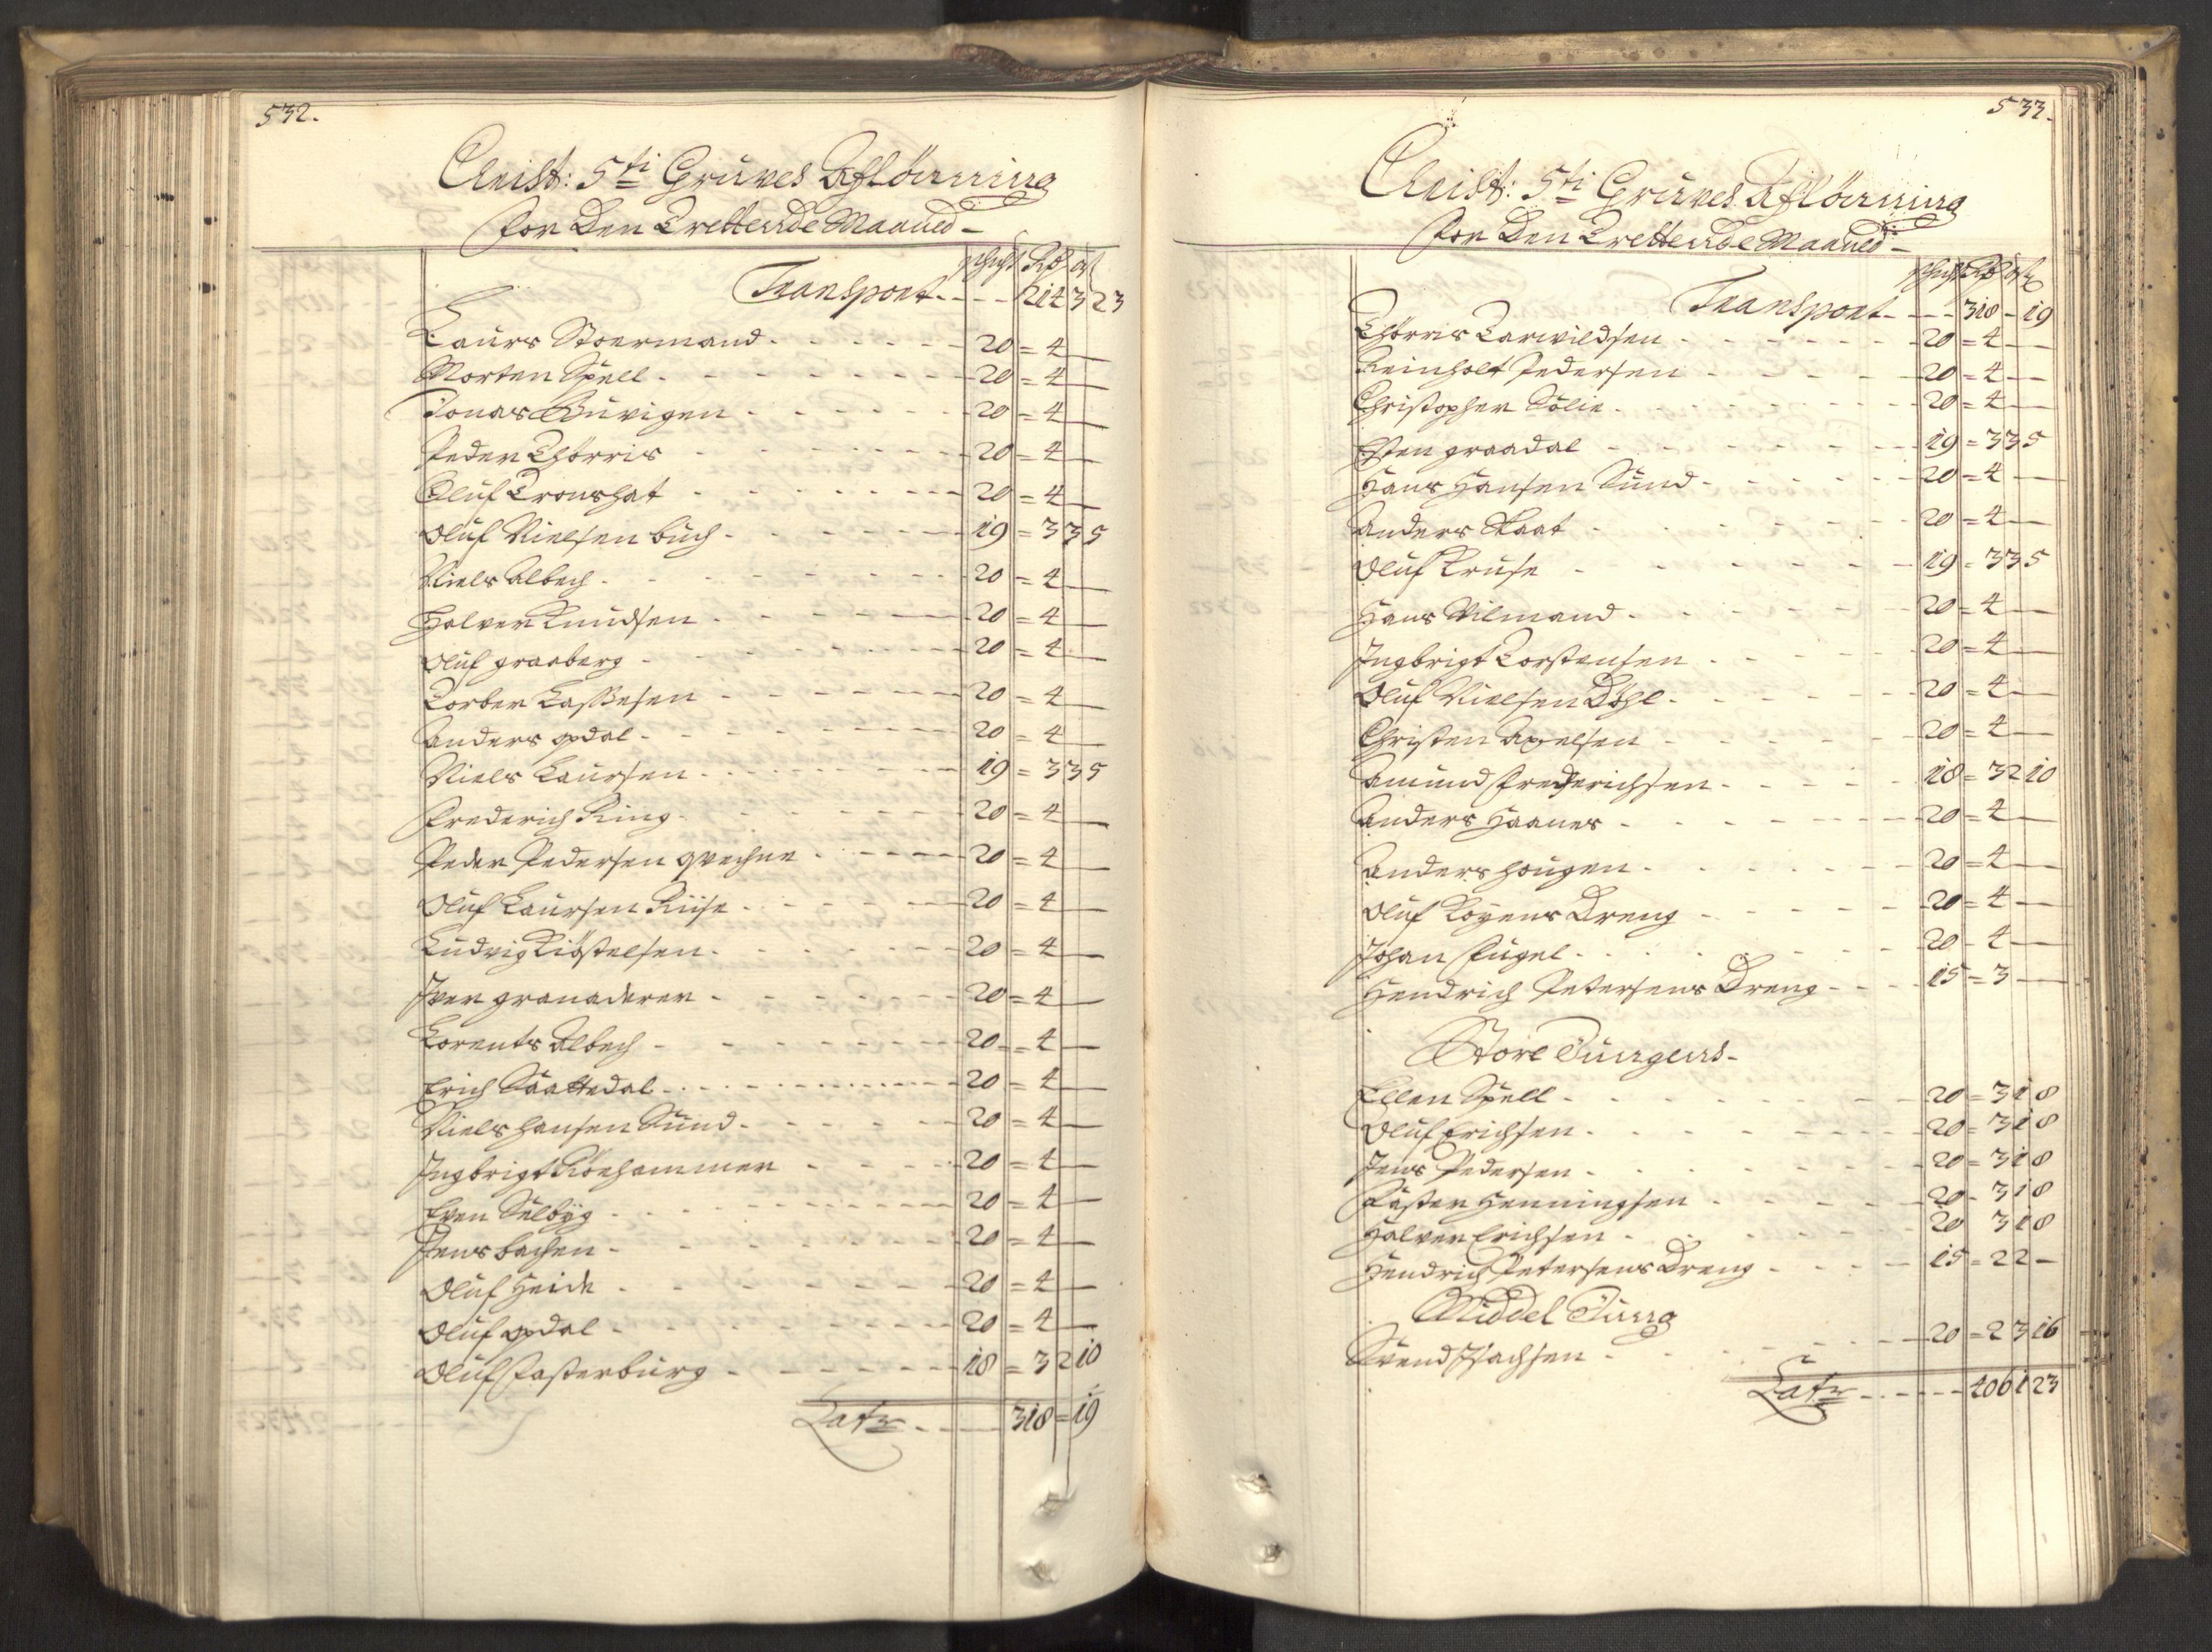 532.
Christ: 5ti Grüves Afløning
for Den Trettende Maaned -
Schicht Rdr ort ß
Transport - - - 214 3 23
Laurs Stoermand - - - 20 = 4 —
Morten Spell - - - 20 = 4 —
Jonas Buvigen - - - 20 = 4 —
Peder Thorris - - - 20 = 4 —
Oluf Tronshat - - - 20 = 4 —
Oluf Nielsen buch - - - 19 = 3 3 5
Niels Albech - - - 20 = 4 —
Halver Knudsen - - - 20 = 4 —
Oluf graaberg - - - 20 = 4 —
Torber Lassesen - - - 20 = 4 —
Anders opdal - - - 20 = 4 —
Niels Laursen - - - 19 = 3 3 5
Frederich Ring - - - 20 = 4 —
Peder Pedersen qvechne - - - 20 = 4 —
Oluf Laursen Riise - - - 20 = 4 —
Ludvig Kiøstelsen - - - 20 = 4 —
Iver granaderer - - - 20 = 4 —
Lorents Albech - - - 20 = 4 —
Erich Saattedal - - - 20 = 4 —
Niels hansen Sund - - - 20 = 4 —
Ingbrigt Ronhammer - - - 20 = 4 —
Even Selbyg - - - 20 = 4 —
Jens bachen - - - 20 = 4 —
Oluf Heide - - - 20 = 4 —
Oluf opdal - - - 20 = 4 —
Oluf Fasterburg - - - 18 = 3 2 10
Latr - - - 318 = 19
533.
Christ: 5ti Grüves Afløning
for Den Trettende Maaned -
Schicht Rdr ort ß
Transport - - - 318 - 19
Thorris Tarvildsen - - - 20 = 4 —
Reinholt Pedersen - - - 20 = 4 —
Christopher Sølie - - - 20 = 4 —
Esten graadal - - - 19 = 3 3 5
Hans Hansen Sund - - - 20 = 4 —
Anders Skaat - - - 20 = 4 —
Oluf Kruse - - - 19 = 3 3 5
Hans Vilmand - - - 20 = 4 —
Ingbrigt Torstensen - - - 20 = 4 —
Oluf Nielsen Døhl - - - 20 = 4 —
Christen Axelsen - - - 20 = 4 —
Amund Frederichsen - - - 18 = 3 2 10
Anders Haanes - - - 20 = 4 —
Anders hougen - - - 20 = 4 —
Oluf Koyens Dreng - - - 20 = 4 —
Johan Fugel - - - 20 - 4 —
Hendrich Petersens Dreng - - - 15 = 3 —
Store Jungens -
Ellen Spell - - - 20 = 3 1 8
Oluf Erichsen - - - 20 = 3 1 8
Jens Pedersen - - - 20 = 3 1 8
Henningsen - - - 20 - 3 1 8
Halver Erichsen - - - 20 3 1 8
Hendrich Petersens Dreng - - - 15 = 2 2 -
Middel Jung
Svend Isachsen - - - 20 = 2 3 16
Latr - - - 406 1 23